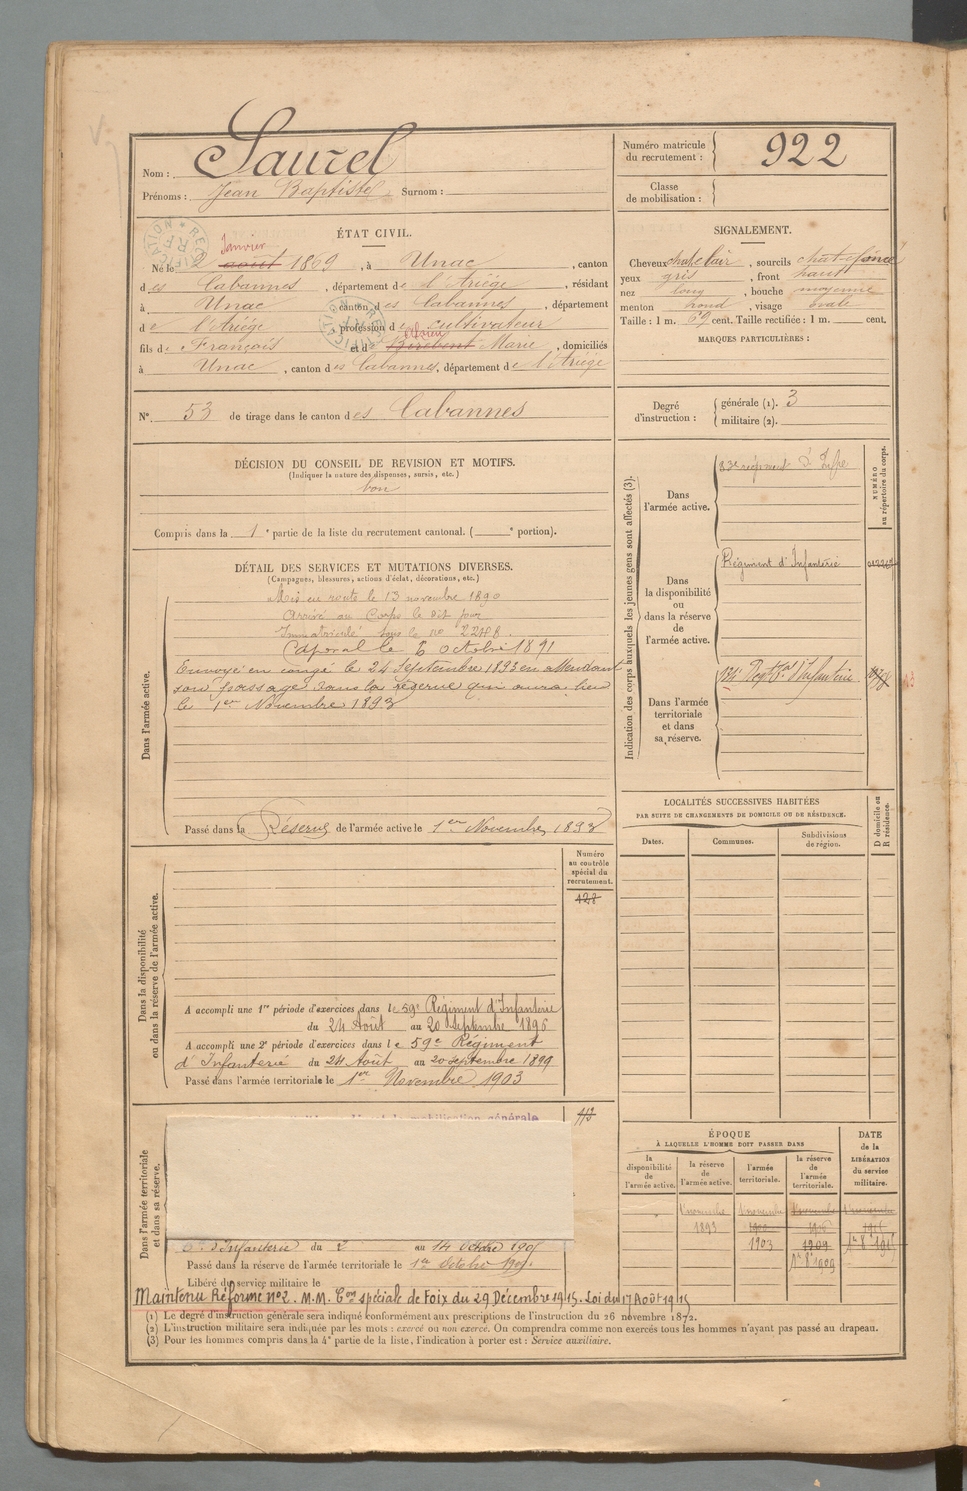 Saurel
Nom :
Prénoms : Jean Baptiste Surnom :
Numéro matricule
du recrutement :
922
Classe
de mobilisation :
ÉTAT CIVIL.
Janvier
Né le 2 août 1869, à Unac, canton
des Cabannes, département de l'Ariège, résidant
à Unac, canton des Cabannes, département
de l'Ariège profession de cultivateur
fils de François et d Marie, domiciliés
à Unac, canton des Cabannes, département de l'Ariège
N° 53 de tirage dans le canton des Cabannes
SIGNALEMENT.
Cheveux chat. clair, sourcils chat. foncé
yeux gris, front haut
nez long, bouche moyenne
menton rond, visage ovale
Taille : 1 m. 69 cent. Taille rectifiée : 1 m. cent.
MARQUES PARTICULIÈRES :
Degré
d'instruction :
générale (1). 3
militaire (2).
DÉCISION DU CONSEIL DE REVISION ET MOTIFS.
(Indiquer la nature des dispenses, sursis, etc.)
bon
Compris dans la 1e partie de la liste du recrutement cantonal. ( e portion).
DÉTAIL DES SERVICES ET MUTATIONS DIVERSES.
(Campagnes, blessures, actions d'éclat, décorations, etc.)
Dans l'armée active.
Mis en route le 13 novembre 1890
Arrivé au Corps le dit jour
Immatriculé sous le no
Caporal le 6 octobre 1891
Envoyé en congé le 24 Septembre 1893 en attendant
son passage dans la réserve qui aura lieu
le 1er Novembre 1893
Passé dans la Réserve de l'armée active le 1er Novembre 1893
Indication des corps auxquels les jeunes gens sont affectés (3).
NUMÉRO
au répertoire du corps.
Dans
l'armée active.
83e régiment d'Infie
Dans
la disponibilité
ou
dans la réserve
de
l'armée active.
Régiment d'Infanterie
Dans l'armée
territoriale
et dans
sa réserve.
134e Regt Tal d'Infanterie
LOCALITÉS SUCCESSIVES HABITÉES
PAR SUITE DE CHANGEMENTS DE DOMICILE OU DE RÉSIDENCE.
D domicile ou
R résidence.
Dates.
Communes.
Subdivisions
de région.
Dans la disponibilité
ou dans la réserve de l'armée active.
Numéro
au contrôle
spécial du
recrutement.
428
A accompli une 1re période d'exercices dans le 59e Régiment d'Infanterie
du 24 Août au 20 Septembre 1896
A accompli une 2e période d'exercices dans le 59e Régiment
d'Infanterie du 24 Août au 20 septembre 1899
Passé dans l'armée territoriale le 1er Novembre 1903
Dans l'armée territoriale
et dans sa réserve.
la mobilisation générale
113
d'Infanterie du 2 au 14 Octobre 190
Passé dans la réserve de l'armée territoriale le 1er Octobre 1909
Libéré du service militaire le
ÉPOQUE
À LAQUELLE L'HOMME DOIT PASSER DANS
DATE
de la
LIBÉRATION
du service
militaire.
la
disponibilité
de
l'armée active.
la réserve
de
l'armée active.
l'armée
territoriale.
la réserve
de
l'armée
territoriale.
1 novembre
1893
1 novembre
1903
1909
Maintenu Réformé no 2. M.M. Con spéciale de Foix du 29 Décembre 1915. Loi du 17 Août 1915
(1) Le degré d'instruction générale sera indiqué conformément aux prescriptions de l'instruction du 26 novembre 1872.
(2) L'instruction militaire sera indiquée par les mots : exercé ou non exercé. On comprendra comme non exercés tous les hommes n'ayant pas passé au drapeau.
(3) Pour les hommes compris dans la 4e partie de la liste, l'indication à porter est : Service auxiliaire.